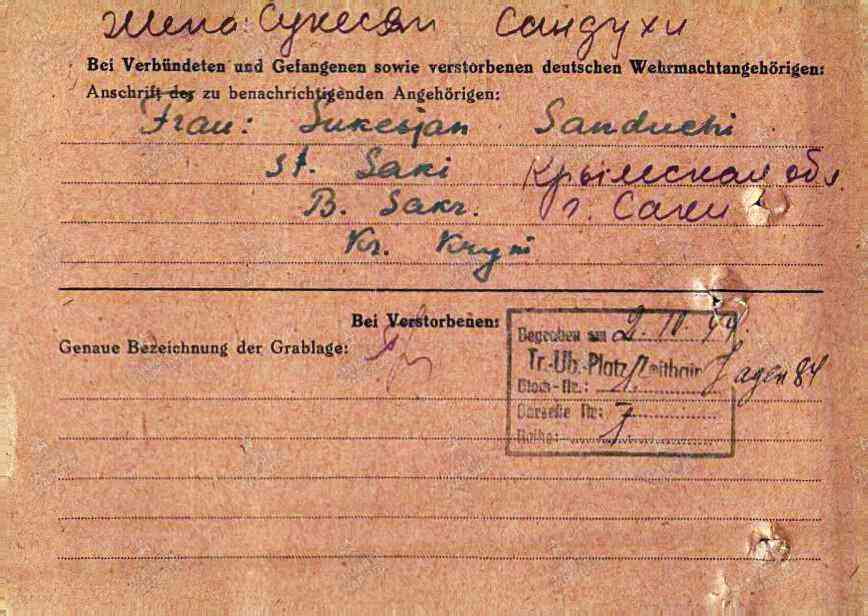 Жена: Сукесян Сандухи
Bei Verbündeten und Gefangenen sowie verstorbenen deutschen Wehrmachtangehörigen:
Anschrift der zu benachrichtigenden Angehörigen:
Frau: Sukesjan Sanduchi
st. Saki Крымская обл.
B. Sakr. г. Саки
Kr. Krym
Bei Verstorbenen:
Genaue Bezeichnung der Grablage:
Begraben am 2. IV. 44.
Tr.-Üb.-Platz Zeithain
Block-Nr.:
Parzelle Nr: 7
Reihe: